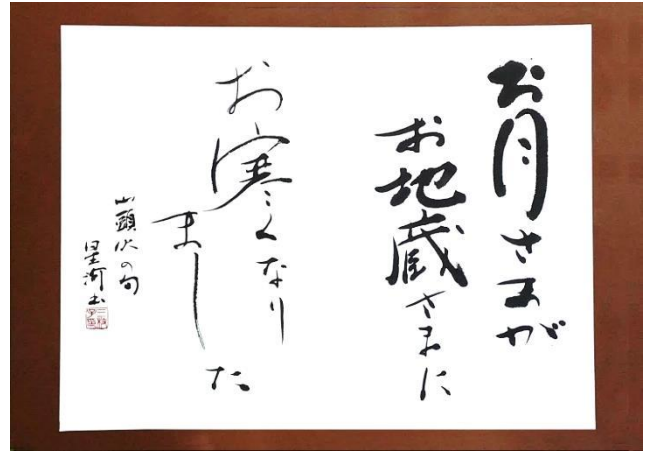 お月さまが
お地蔵さまに
お寒くなり
ました
山頭火の句
星河書